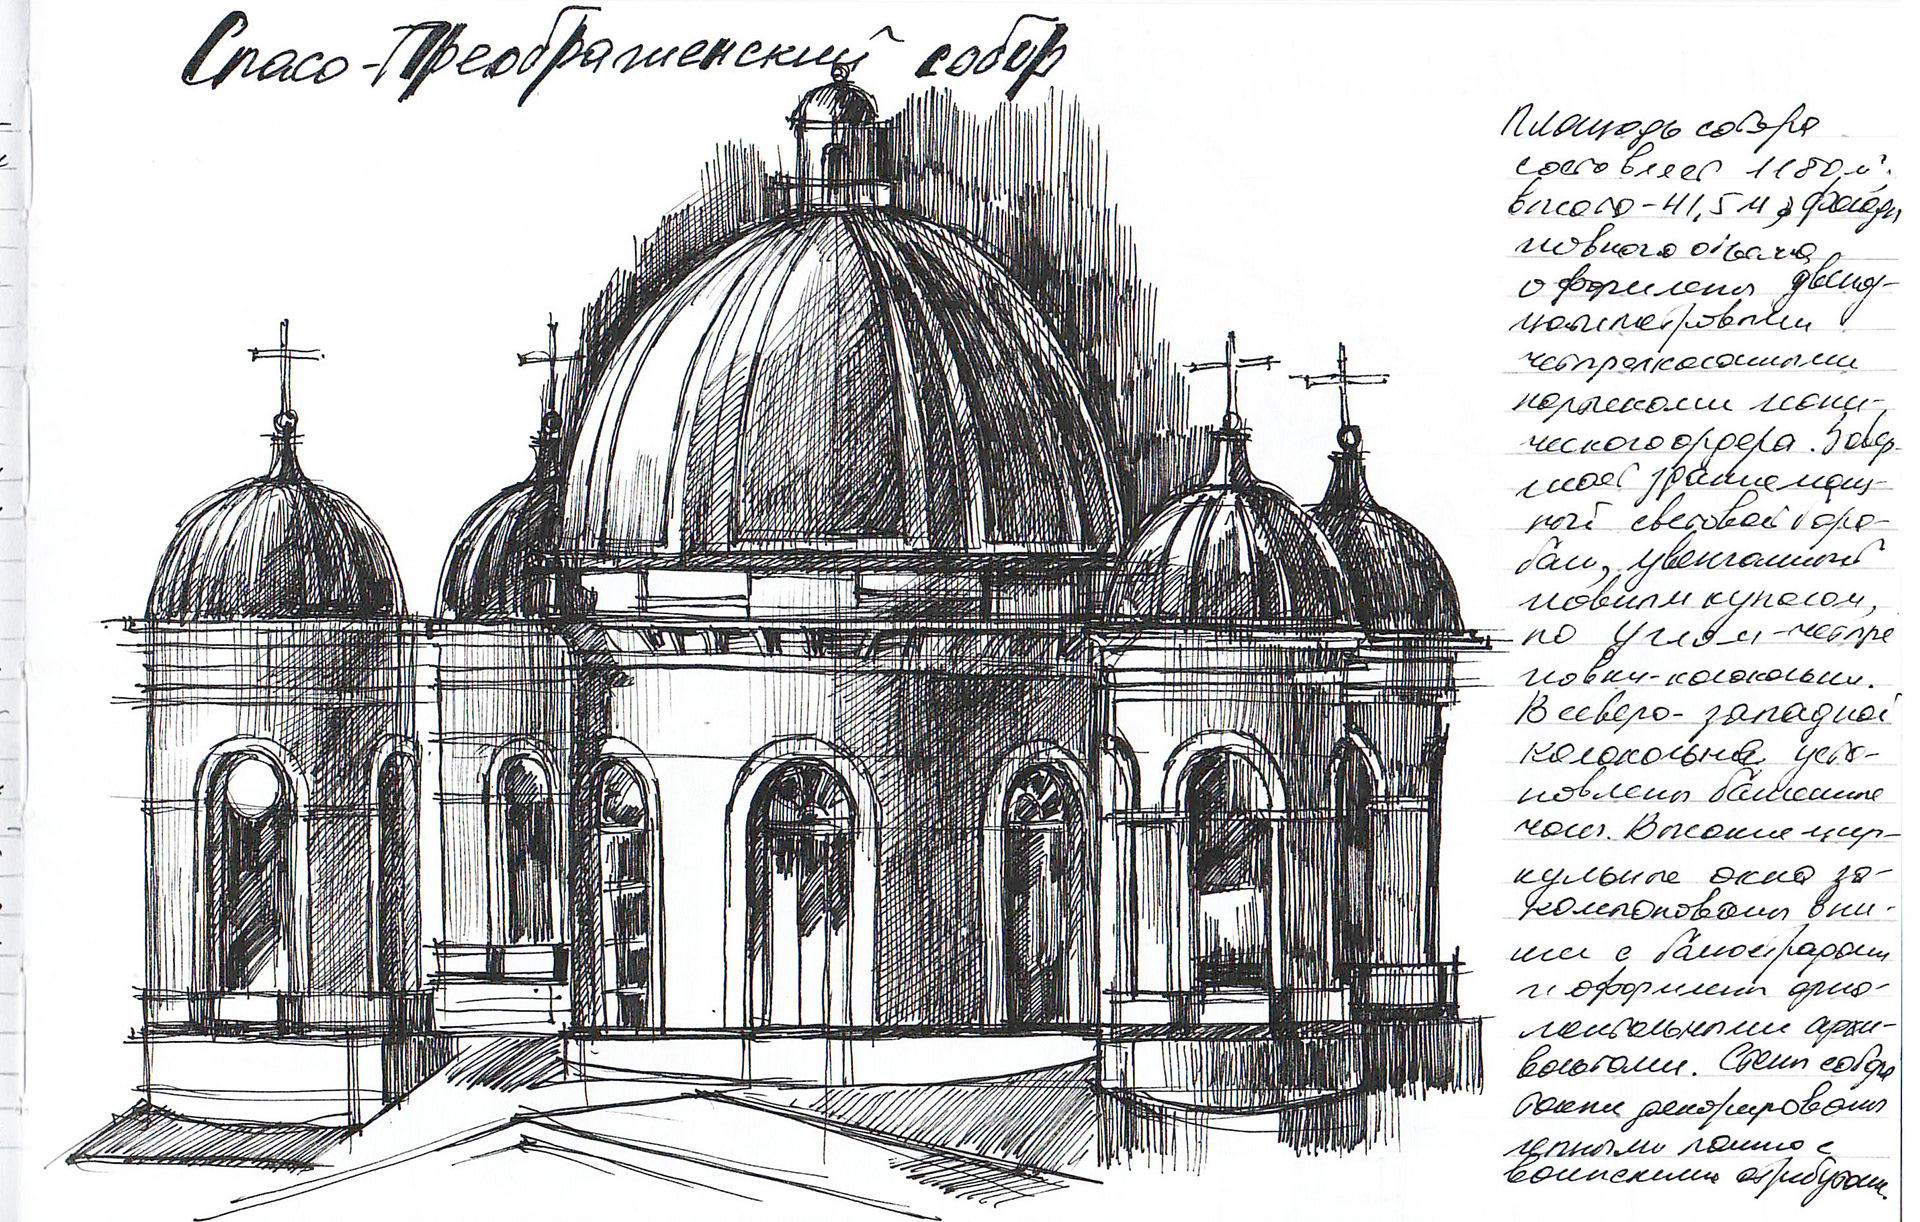 Спасо-Преображенский собор
Площадь собора
составляет 1180 м².
высота - 41,5 м, фасады
главного объема
оформлены двенад-
цатиметровыми
четырехколонными
портиками иони-
ческого ордера. Завер-
шает здание мощ-
ный световой бара-
бан, увенчанный
главным куполом,
по углам - четыре
главки-колокольни.
В северо-западной
колокольне уста-
новлены башенные
часы. Высокие цир-
кульные окна за-
компонованы в ни-
ши с балюстрадами
и оформлены орна-
ментальными архи-
вольтами. Стены собора
декорированы
лепными панно с
воинскими атрибутами.